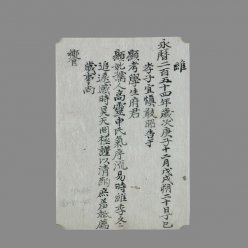 維
永曆二百五十四年歲次庚子十二月戊戌朔二十日丁巳
孝子宜愼敢昭告于
顯考學生府君
顯妣孺人高靈申氏氣序流易時維季冬
追遠感時昊天罔極謹以清酌庶羞祗薦
歲事尚
饗